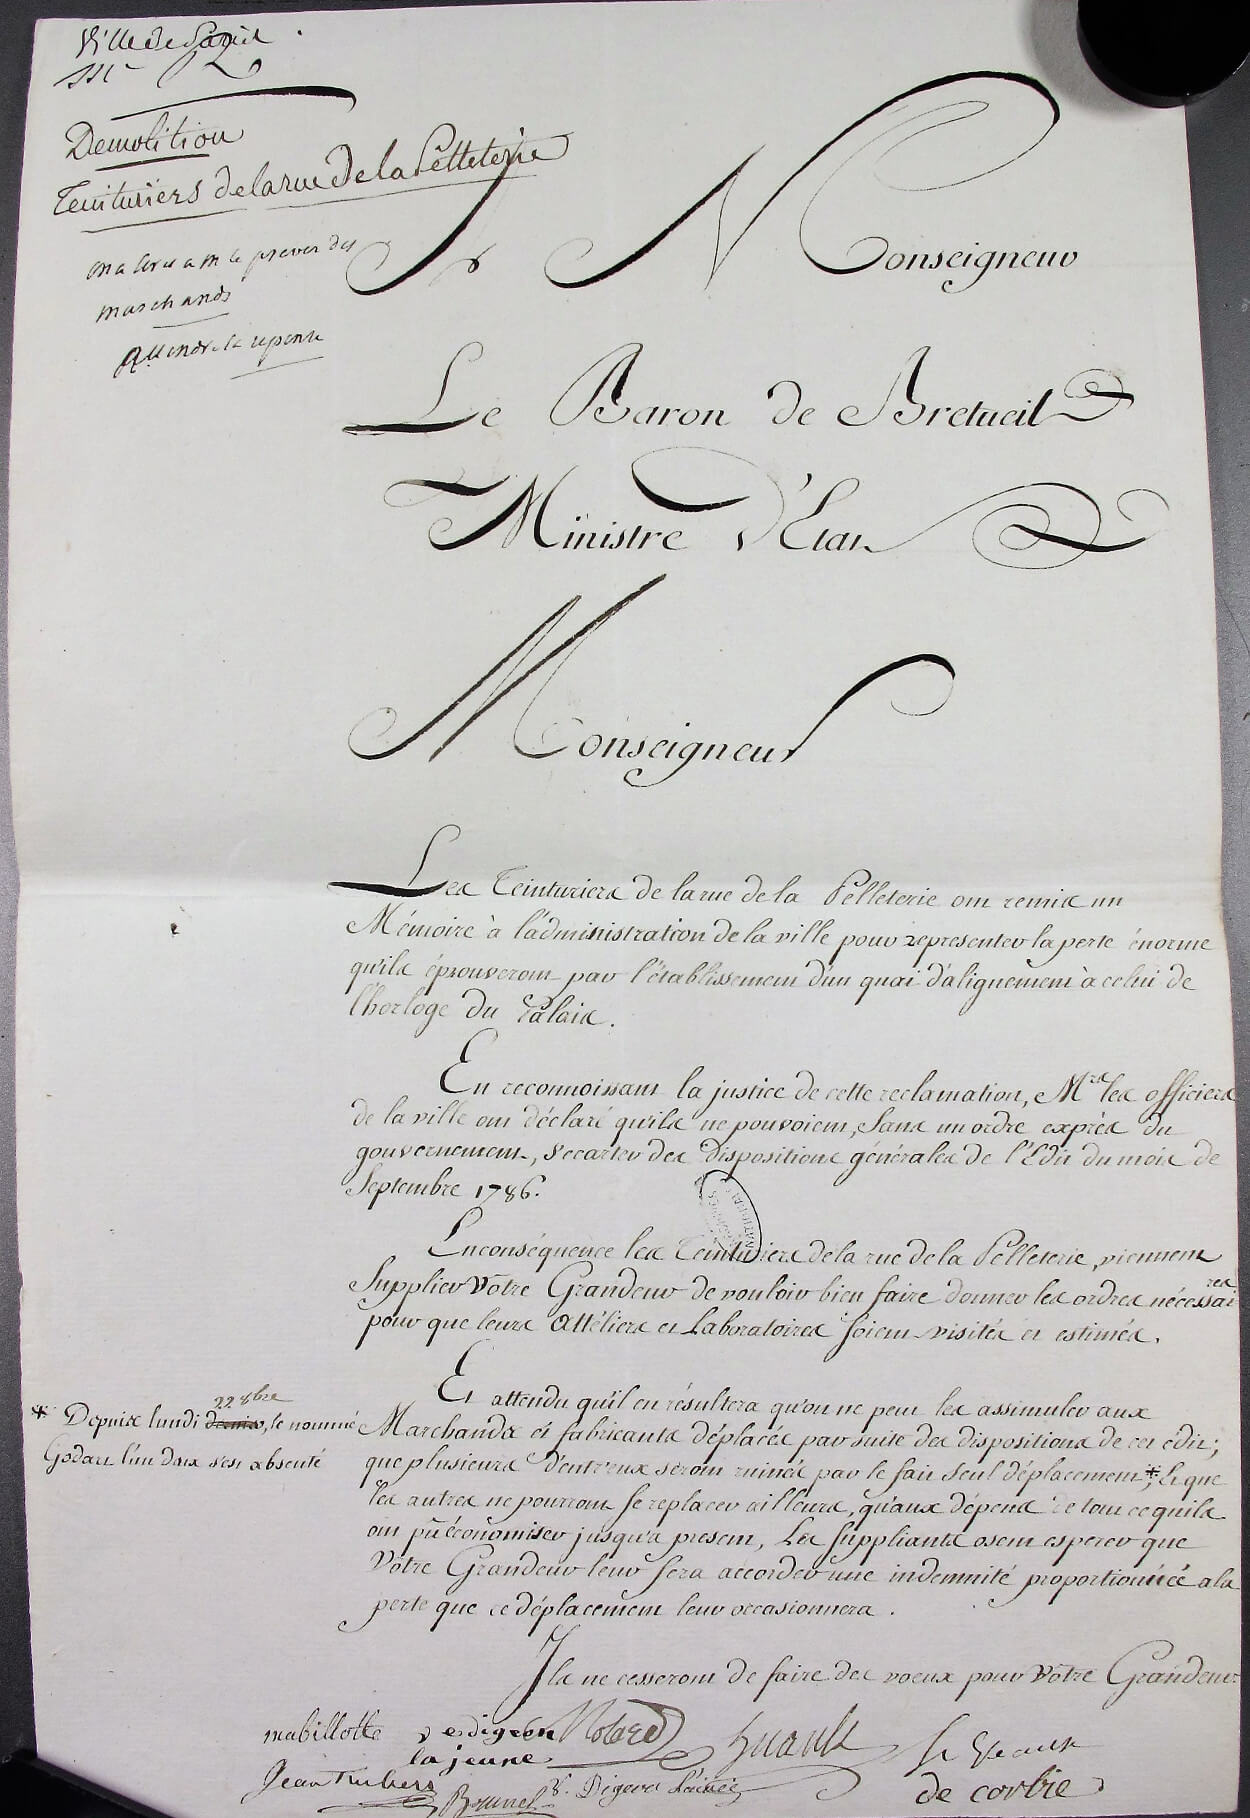 Ville de Paris
Demolition
Teinturiers de la rue de la Pelleterie
marchands
Attendre la reponse
A Monseigneur
Le Baron de Breteuil
Ministre d'Etat
Monseigneur
Les Teinturiers de la rue de la Pelleterie ont remis un
Mémoire à l'administration de la ville pour representer la perte énorme
qu'ils éprouveront par l'établissement d'un quai d'alignement à celui de
l'horloge du Palais.
En reconnoissant la justice de cette reclamation, Mrs les officiers
de la ville ont déclaré qu'ils ne pouvoient, sans un ordre exprès du
gouvernement, s'ecarter des dispositions générales de l'Edit du mois de
Septembre 1786.
En conséquence les Teinturiers de la rue de la Pelleterie, viennent
Supplier Votre Grandeur de vouloir bien faire donner les ordres nécessaires
pour que leurs Attéliers et Laboratoires soient visités et estimés.
Et attendu qu'il en résultera qu'on ne peut les assimuler aux
* Depuis lundi 22 8bre, le nommé
Godart l'un d'eux s'est absenté
Marchands et fabricants déplacés par suite des dispositions de cet édit;
que plusieurs d'entr'eux seront ruinés par le fait seul déplacement*; Et que
les autres ne pourront se replacer ailleurs, qu'aux dépens de tout ce quils
ont pû économiser jusqu'a present, Les suppliants osent esperer que
Votre Grandeur leur fera accorder une indemnité proportionnée a la
perte que ce déplacement leur occasionnera.
Ils ne cesseront de faire des voeux pour Votre Grandeur
mabillotte verdigeon
la jeune
Brunel
de corbie